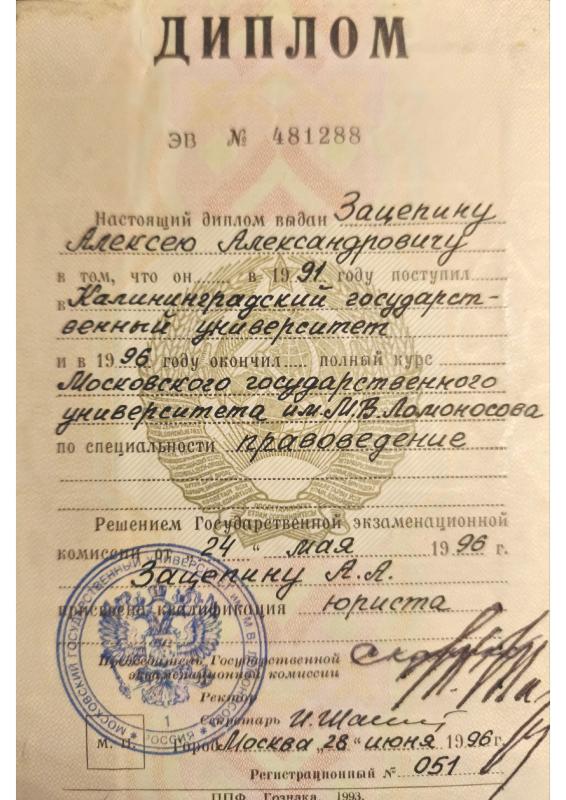 ДИПЛОМ
ЭВ № 481288
Настоящий диплом выдан Зацепину
Алексею Александровичу
в том, что он в 1991 году поступил
в Калининградский государст-
венный университет
и в 1996 году окончил полный курс
Московского государственного
университета им. М.В. Ломоносова
по специальности правоведение
Решением Государственной экзаменационной
комиссии от „24“ мая 1996 г.
Зацепину А.А.
присвоена квалификация юриста
Председатель Государственной
экзаменационной комиссии
Ректор
Секретарь
М. П. Город Москва „28“ июня 1996 г.
Регистрационный № 051
ППФ Гознака. 1993.
МОСКОВСКИЙ ГОСУДАРСТВЕННЫЙ УНИВЕРСИТЕТ ИМ. М.В. ЛОМОНОСОВА
1
РОССИЯ